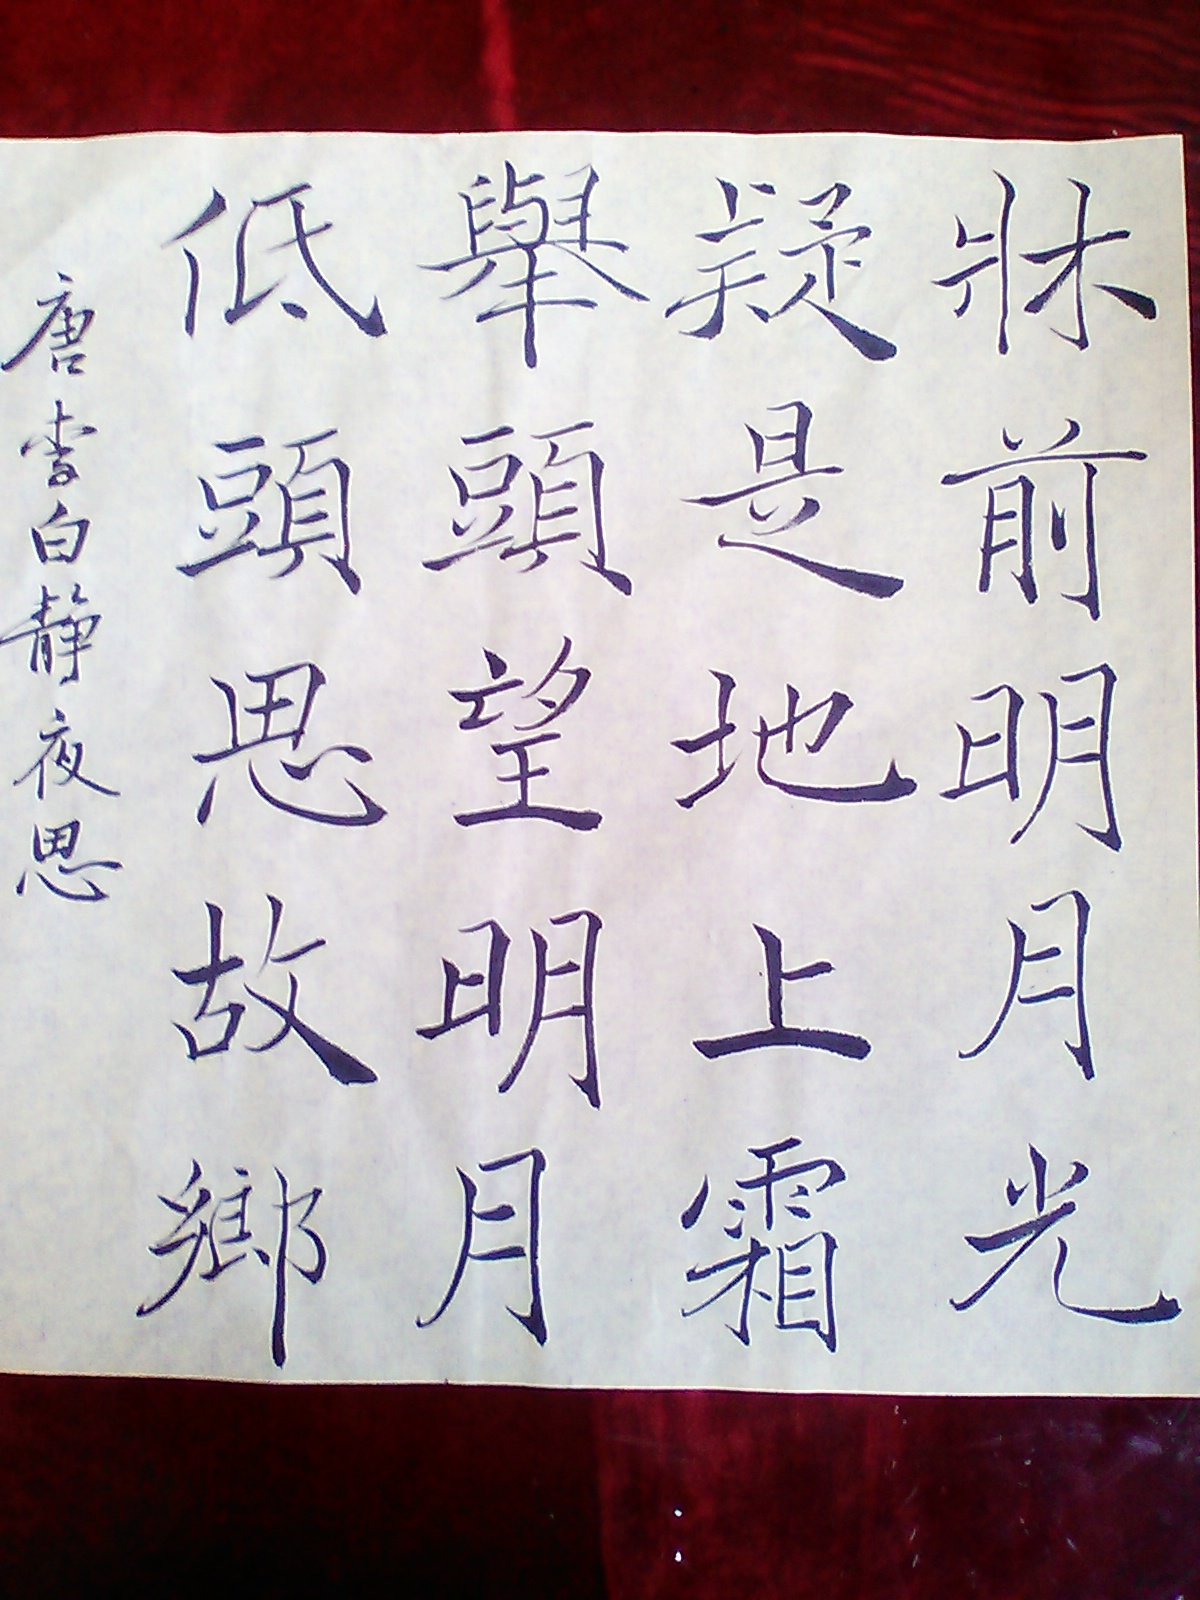 牀前明月光
疑是地上霜
舉頭望明月
低頭思故鄉
唐李白静夜思